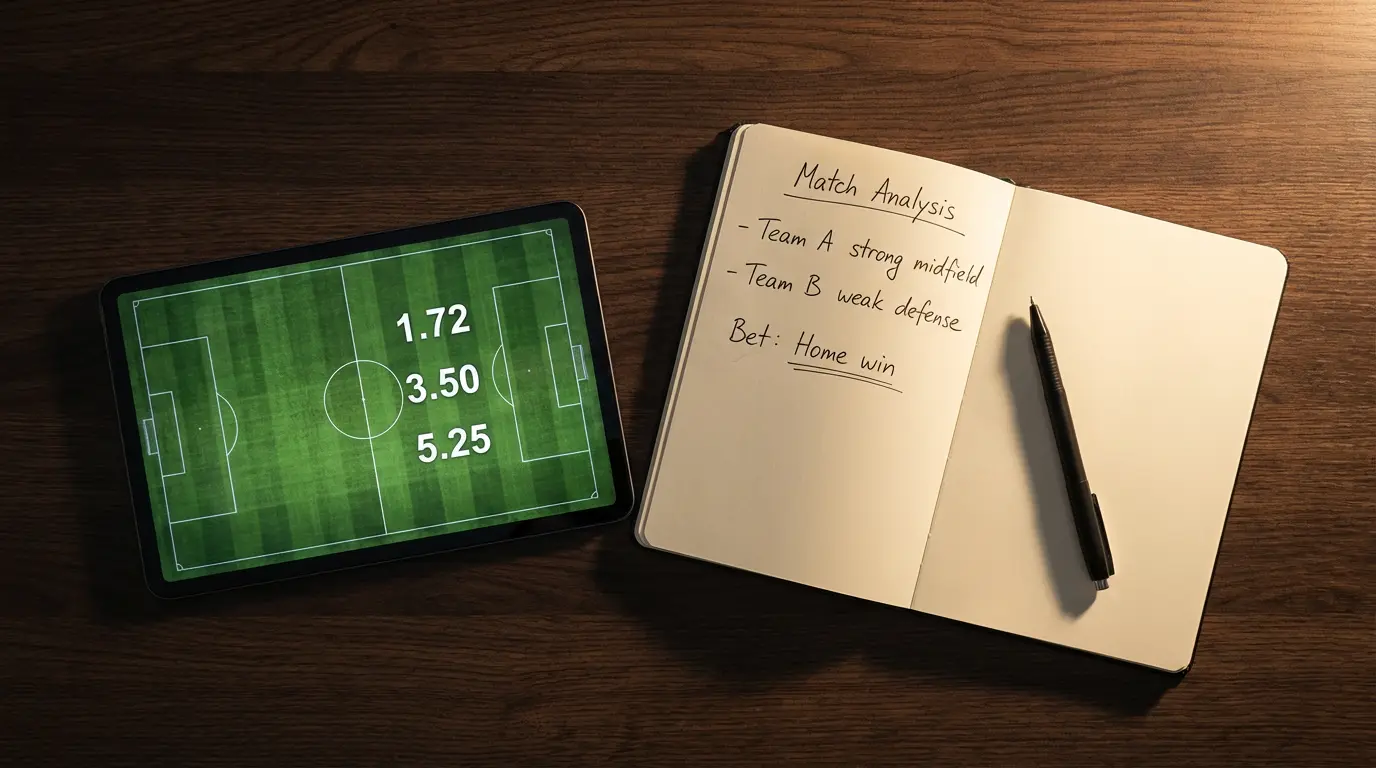 1.72
3.50
5.25
Match Analysis
- Team A strong midfield
- Team B weak defense
Bet: Home win